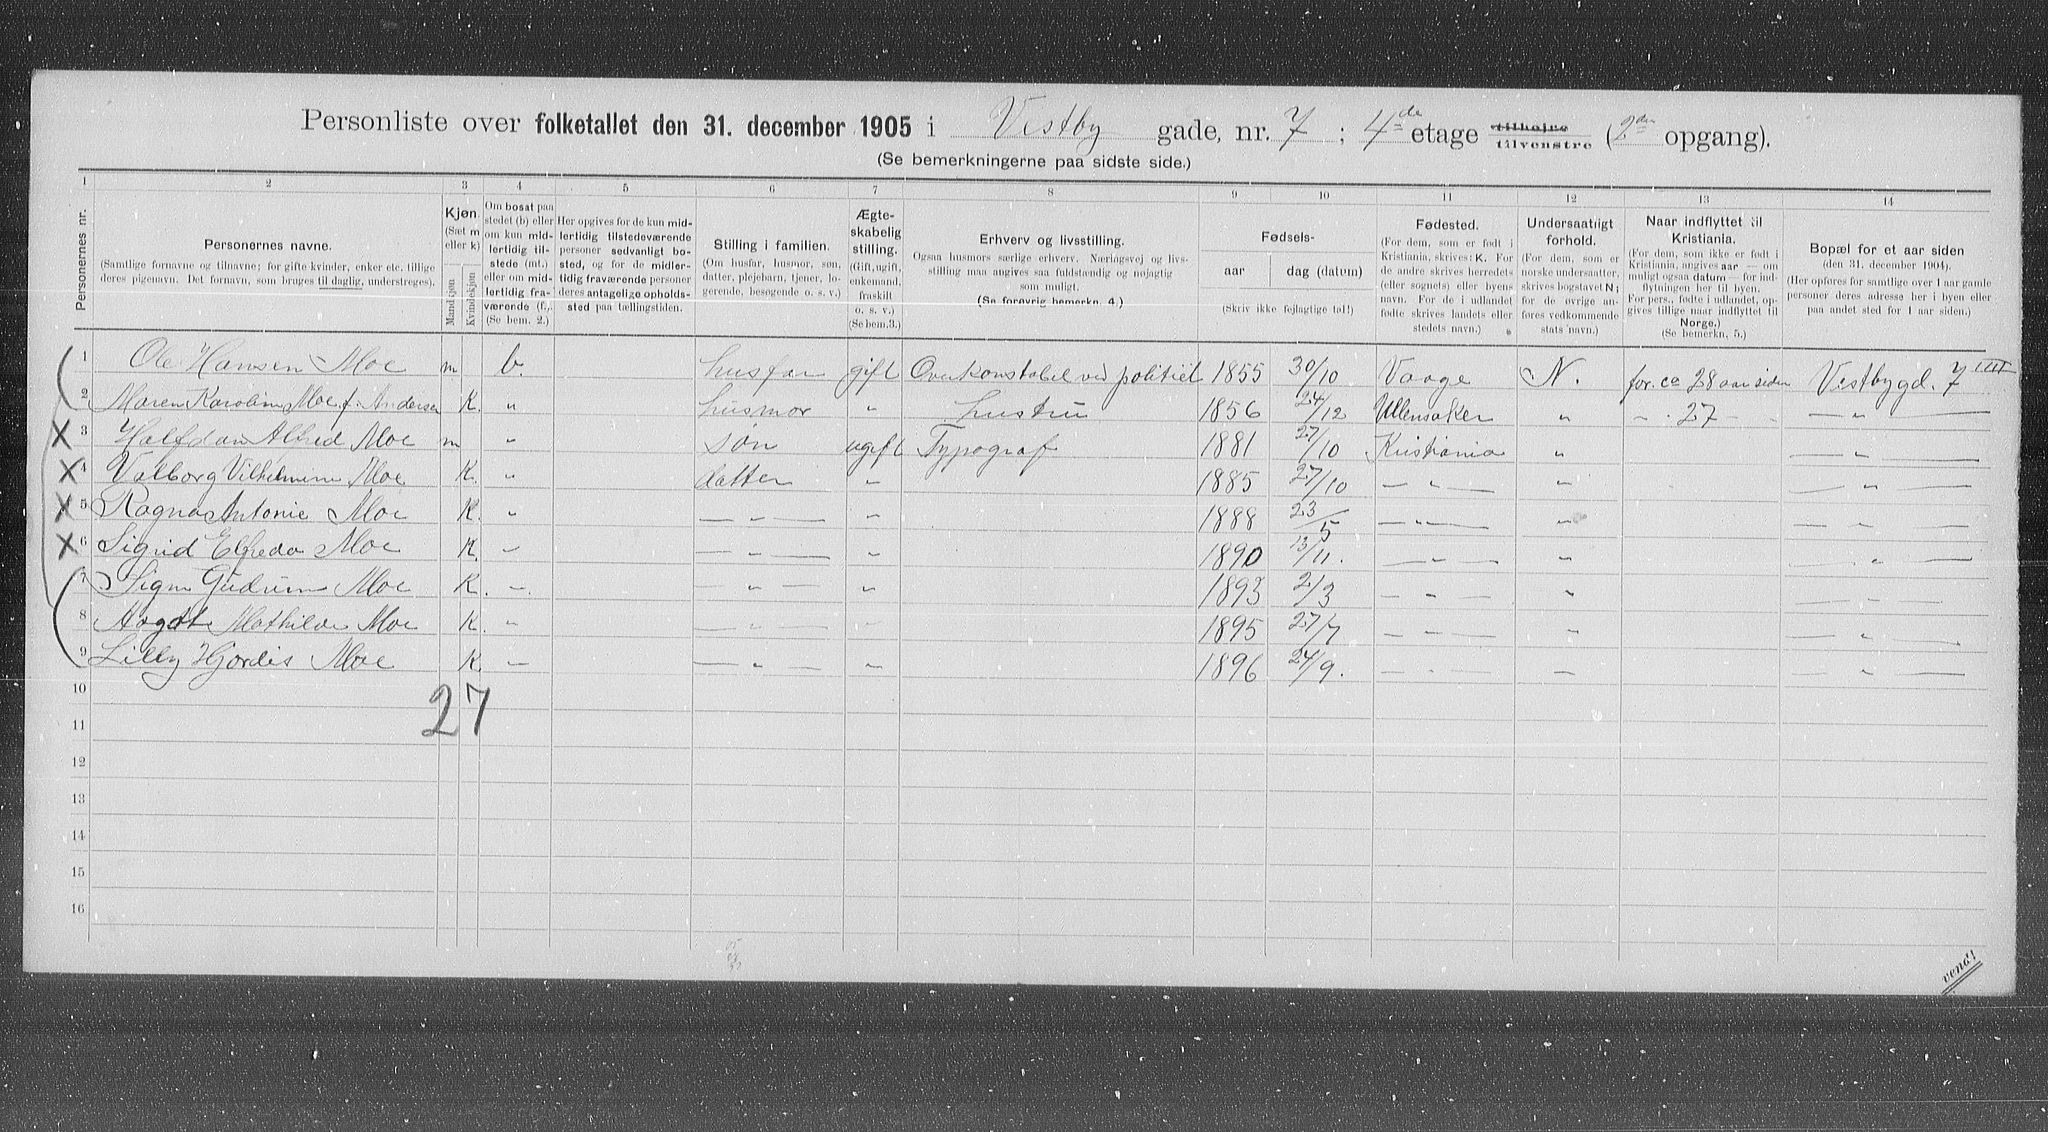 Personliste over folketallet den 31. december 1905 i Vestby gade, nr. 7 ; 4de etage tilhøjre tilvenstre (2den opgang).
(Se bemerkningerne paa sidste side.)
1 2 3 4 5 6 7 8 9 10 11 12 13 14
Personernes nr.
Personernes navne.
(Samtlige fornavne og tilnavne; for gifte kvinder, enker etc. tillige deres pigenavn. Det fornavn, som bruges til daglig, understreges).
Kjøn.
(Sæt m eller k)
Mandkjøn
Kvindekjøn
Om bosat paa stedet (b) eller om kun midlertidig tilstede (mt.) eller om midlertidig fraværende (f.). (Se bem. 2.)
Her opgives for de kun midlertidig tilstedeværende personer sedvanligt bosted, og for de midlertidig fraværende personer deres antagelige opholdssted paa tællingstiden.
Stilling i familien.
(Om husfar, husmor, søn, datter, plejebarn, tjener, logerende, besøgende o. s. v.)
Ægteskabelig stilling.
(Gift, ugift, enkemand, fraskilt o. s. v.)
(Se bem. 3.)
Erhverv og livsstilling.
Ogsaa husmors særlige erhverv. Næringsvej og livsstilling maa angives saa fuldstændig og nøjagtig som muligt.
(Se forøvrig bemerkn. 4.)
Fødsels-
aar
dag (datum)
(Skriv ikke fejlagtige tal!)
Fødested.
(For dem, som er født i Kristiania, skrives: K. For de andre skrives herredets (eller sognets) eller byens navn. For de i udlandet fødte skrives landets eller stedets navn.)
Undersaatligt forhold.
(For dem, som er norske undersaatter, skrives bogstavet N; for de øvrige anføres vedkommende stats navn.)
Naar indflyttet til Kristiania.
(For dem, som ikke er født i Kristiania, angives aar — om muligt ogsaa datum — for indflytningen her til byen. For pers., fødte i udlandet, opgives tillige naar indflyttet til Norge.)
(Se bemerkn. 5.)
Bopæl for et aar siden
(den 31. december 1904).
(Her opføres for samtlige over 1 aar gamle personer deres adresse her i byen eller paa andet sted for 1 aar siden.)
1 Ole Hansen Moe m b. husfar gift Overkonstabel ved politiet 1855 30/10 Vaage N. for ca 28 aar siden Vestbygd. 7 IIII
2 Maren Karoline Moe f. Andersen K. " husmor " hustru 1856 24/12 Ullensaker " - 27 - - — " —
X 3 Halfdan Alfred Moe m " søn ugift Typograf 1881 27/10 Kristiania " — " —
X 4 Valborg Vilhelmine Moe K. " datter " 1885 27/10 — " — " — " —
X 5 Ragna Antonie Moe K. " — " — " 1888 23/5 — " — " — " —
X 6 Sigrid Elfreda Moe K. " — " — " 1890 13/11. — " — " — " —
7 Signe Gudrun Moe K. " — " — " 1893 2/3 — " — " — " —
8 Aagot Mathilde Moe K. " — " — " 1895 27/7 — " — " — " —
9 Lilly Hjordis Moe K. " — " — " 1896 24/9. — " — " — " —
10
27
11
12
13
14
15
16
vend!